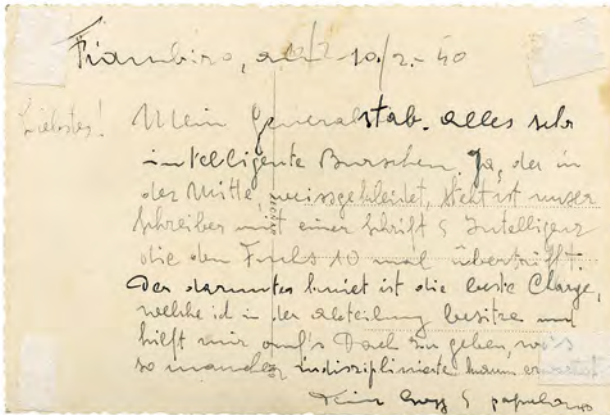 Fiambiro, am 10./2.- 40
Liebstes! Mein Generalstab. Alles sehr
intelligente Burschen. Ja, der in
der Mitte, weissgekleidet, steht ist unser
Schreiber mit einer Schrift & Intelligenz
die den Fuchs 10 mal übertrifft.
Der darunter kniet ist die beste Charge,
welche ich in der Abteilung besitze und
hilft mir auf's Dach zu geben, was
so mancher indisziplinierte kaum erwartet
Dein &